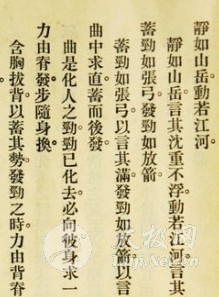 靜如山岳動若江河。
靜如山岳言其沈重不浮動若江河言其
蓄勁如張弓發勁如放箭
蓄勁如張弓以言其滿發勁如放箭以言
曲中求直蓄而後發
曲是化人之勁勁已化去必向彼身求一
力由脊發步隨身換。
含胸拔背以蓄其勢發勁之時力由背脊
极网